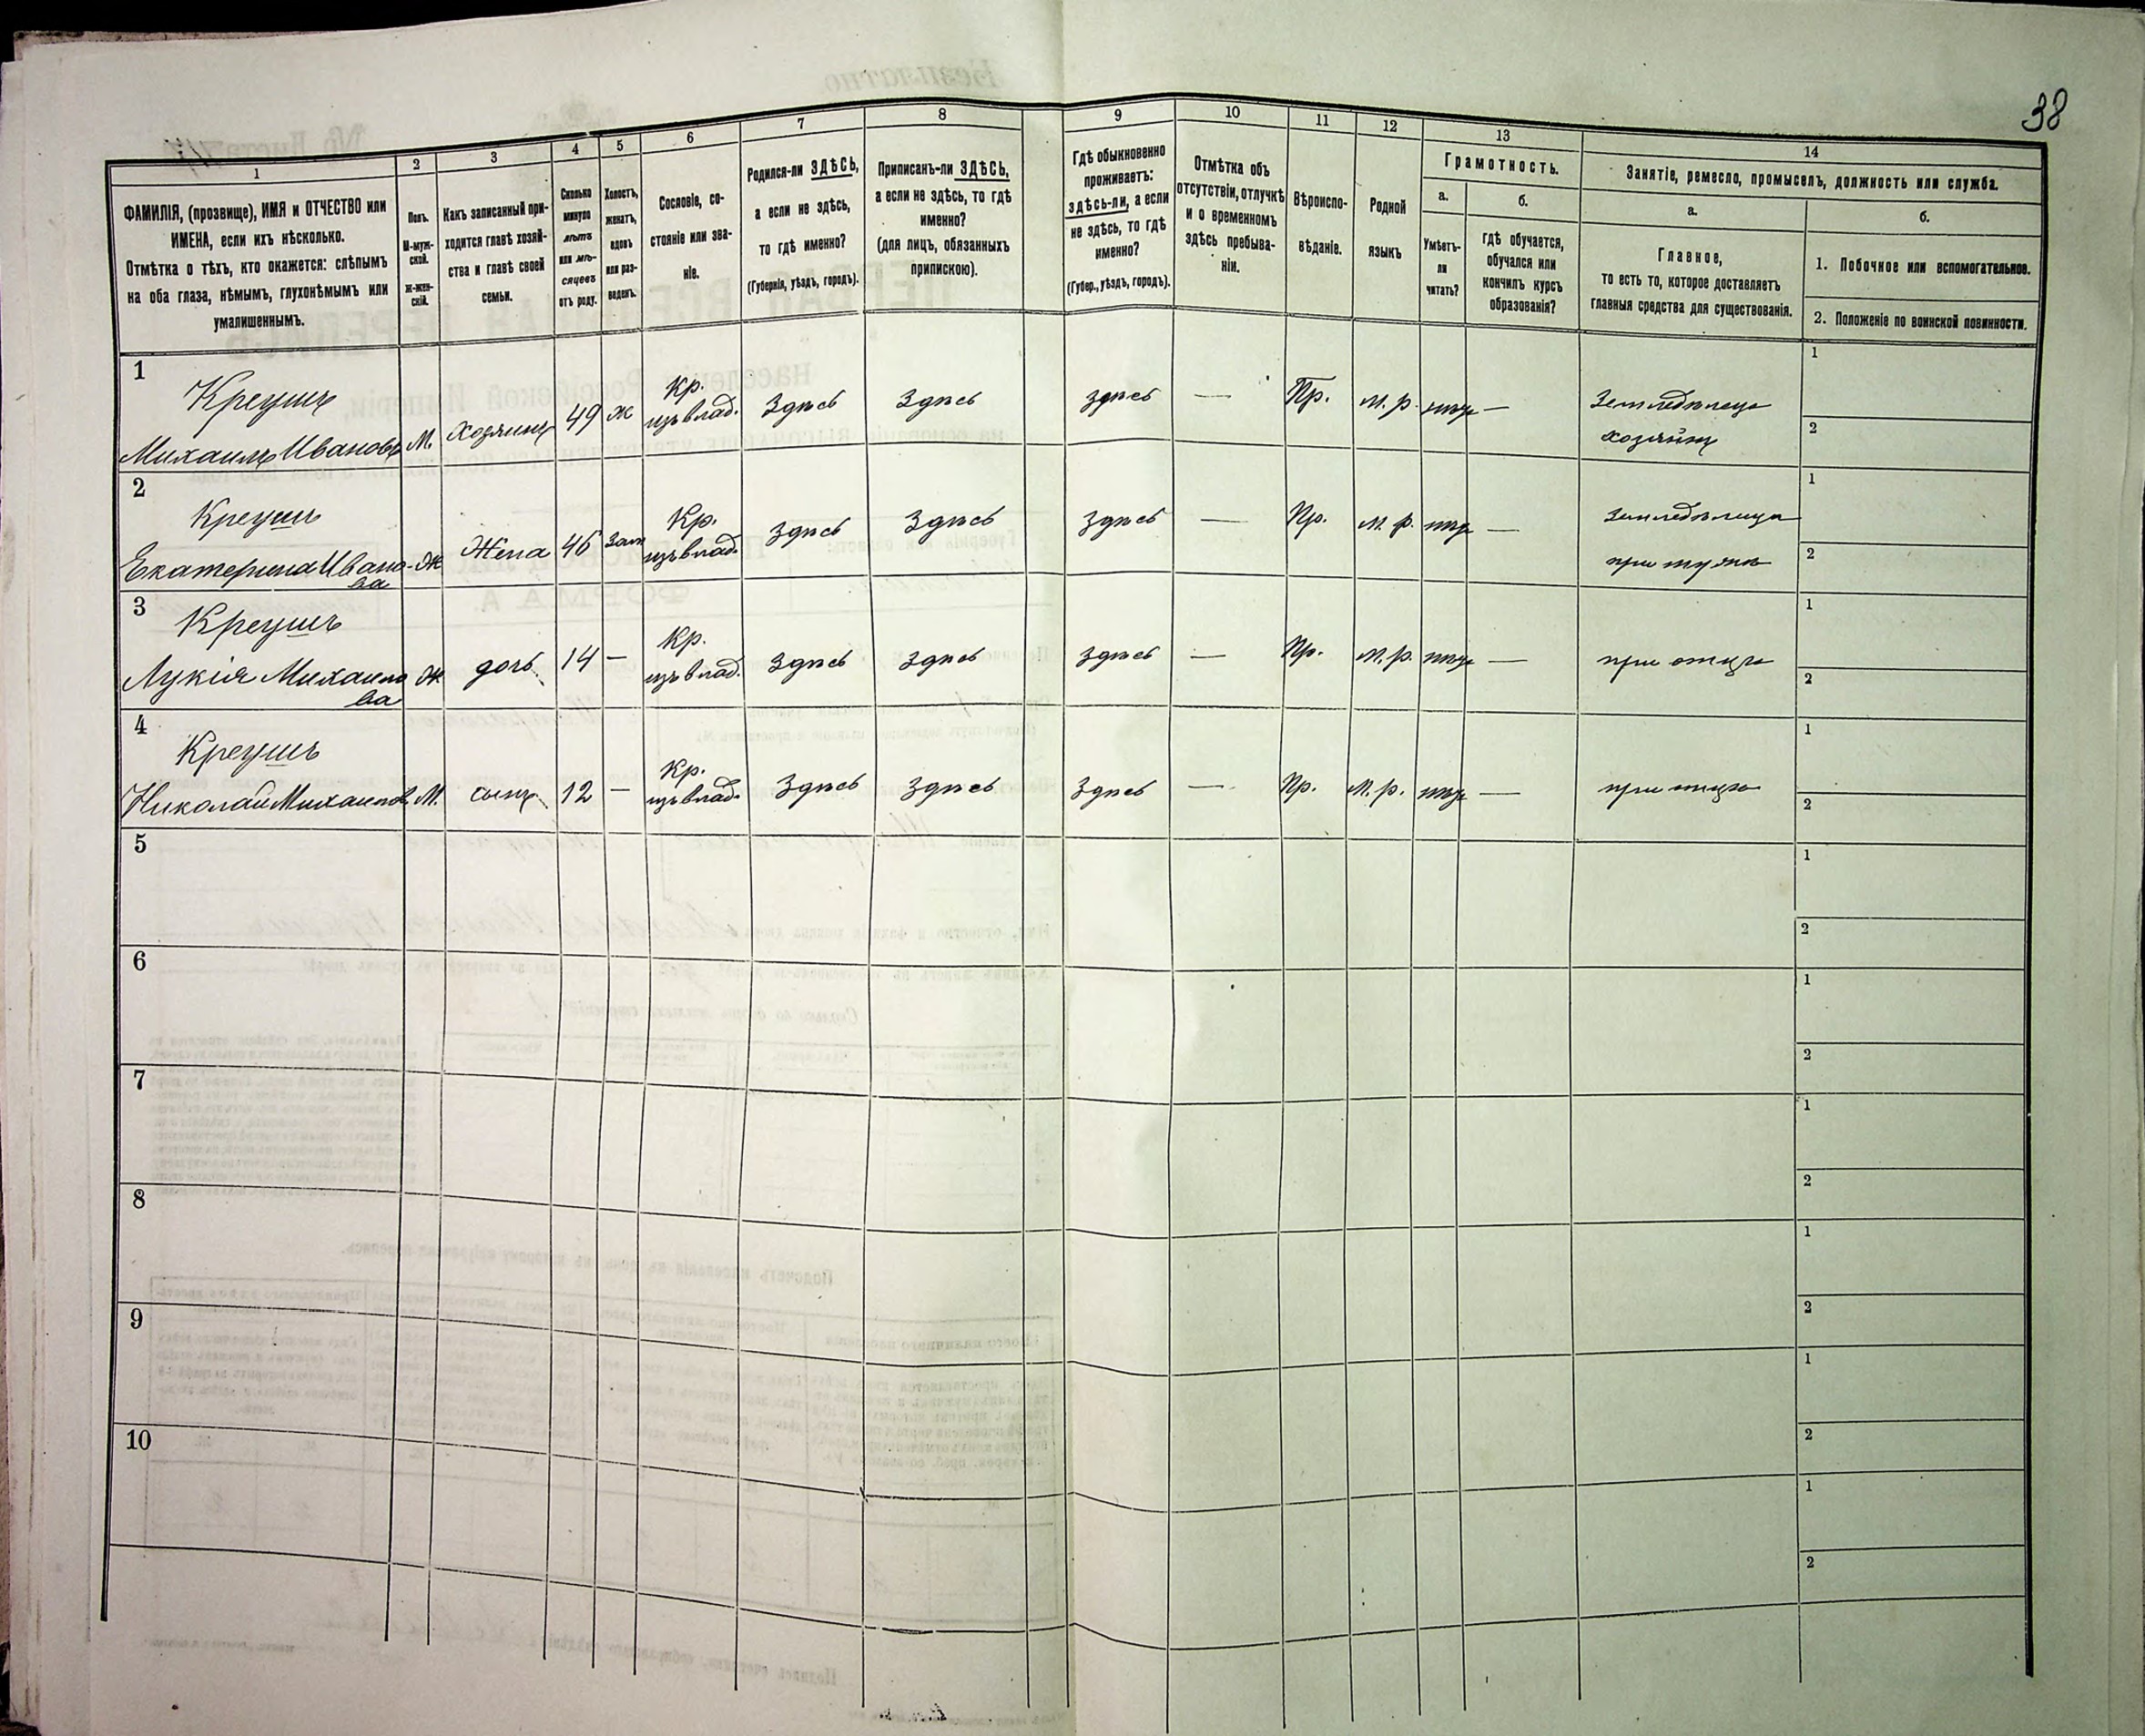 38
1
2
3
4
5
6
7
8
9
10
11
12
13
14
ФАМИЛІЯ, (прозвище), ИМЯ и ОТЧЕСТВО или
ИМЕНА, если ихъ нѣсколько.
Отмѣтка о тѣхъ, кто окажется: слѣпымъ
на оба глаза, нѣмымъ, глухонѣмымъ или
умалишеннымъ.
Полъ.
М-муж-
ской.
Ж-жен-
скій.
Какъ записанный при-
ходится главѣ хозяй-
ства и главѣ своей
семьи.
Сколько
минуло
лѣтъ
или мѣ-
сяцевъ
отъ роду.
Холостъ,
женатъ,
вдовъ
или раз-
веденъ.
Сословіе, со-
стояніе или зва-
ніе.
Родился-ли ЗДѢСЬ,
а если не здѣсь,
то гдѣ именно?
(Губернія, уѣздъ, городъ).
Приписанъ-ли ЗДѢСЬ,
а если не здѣсь, то гдѣ
именно?
(для лицъ, обязанныхъ
припискою).
Гдѣ обыкновенно
проживаетъ:
здѣсь-ли, а если
не здѣсь, то гдѣ
именно?
(Губер., уѣздъ, городъ).
Отмѣтка объ
отсутствіи, отлучкѣ
и о временномъ
здѣсь пребыва-
ніи.
Вѣроиспо-
вѣданіе.
Родной
языкъ
Грамотность.
а.
Умѣетъ-
ли
читать?
б.
гдѣ обучается,
обучался или
кончилъ курсъ
образованія?
Занятіе, ремесло, промыселъ, должность или служба.
а.
Главное,
то есть то, которое доставляетъ
главныя средства для существованія.
б.
1. Побочное или вспомогательное.
2. Положеніе по воинской повинности.
1
Креушъ
Михаилъ Ивановъ
М.
хозяинъ
49
ж
Кр.
изъ влад.
Здѣсь
Здѣсь
здѣсь
—
Пр.
м. р.
нѣтъ
—
Земледѣлецъ
хозяинъ
1
2
2
Креушъ
Екатерина Ивано-
ва
Ж
Жена
46
Зам
Кр.
изъ влад.
Здѣсь
Здѣсь
Здѣсь
—
Пр.
м. р.
нѣтъ
—
Земледѣлица
при мужѣ
1
2
3
Креушъ
Лукія Михаило
ва
Ж
дочь
14
—
Кр.
изъ влад.
Здѣсь
Здѣсь
Здѣсь
—
Пр.
м. р.
нѣтъ
—
при отцѣ
1
2
4
Креушъ
Николай Михаиловъ
М.
сынъ
12
—
Кр.
изъ влад.
Здѣсь
Здѣсь
Здѣсь
—
Пр.
м. р.
нѣтъ
—
при отцѣ
1
2
5
1
2
6
1
2
7
1
2
8
1
2
9
1
2
10
1
2